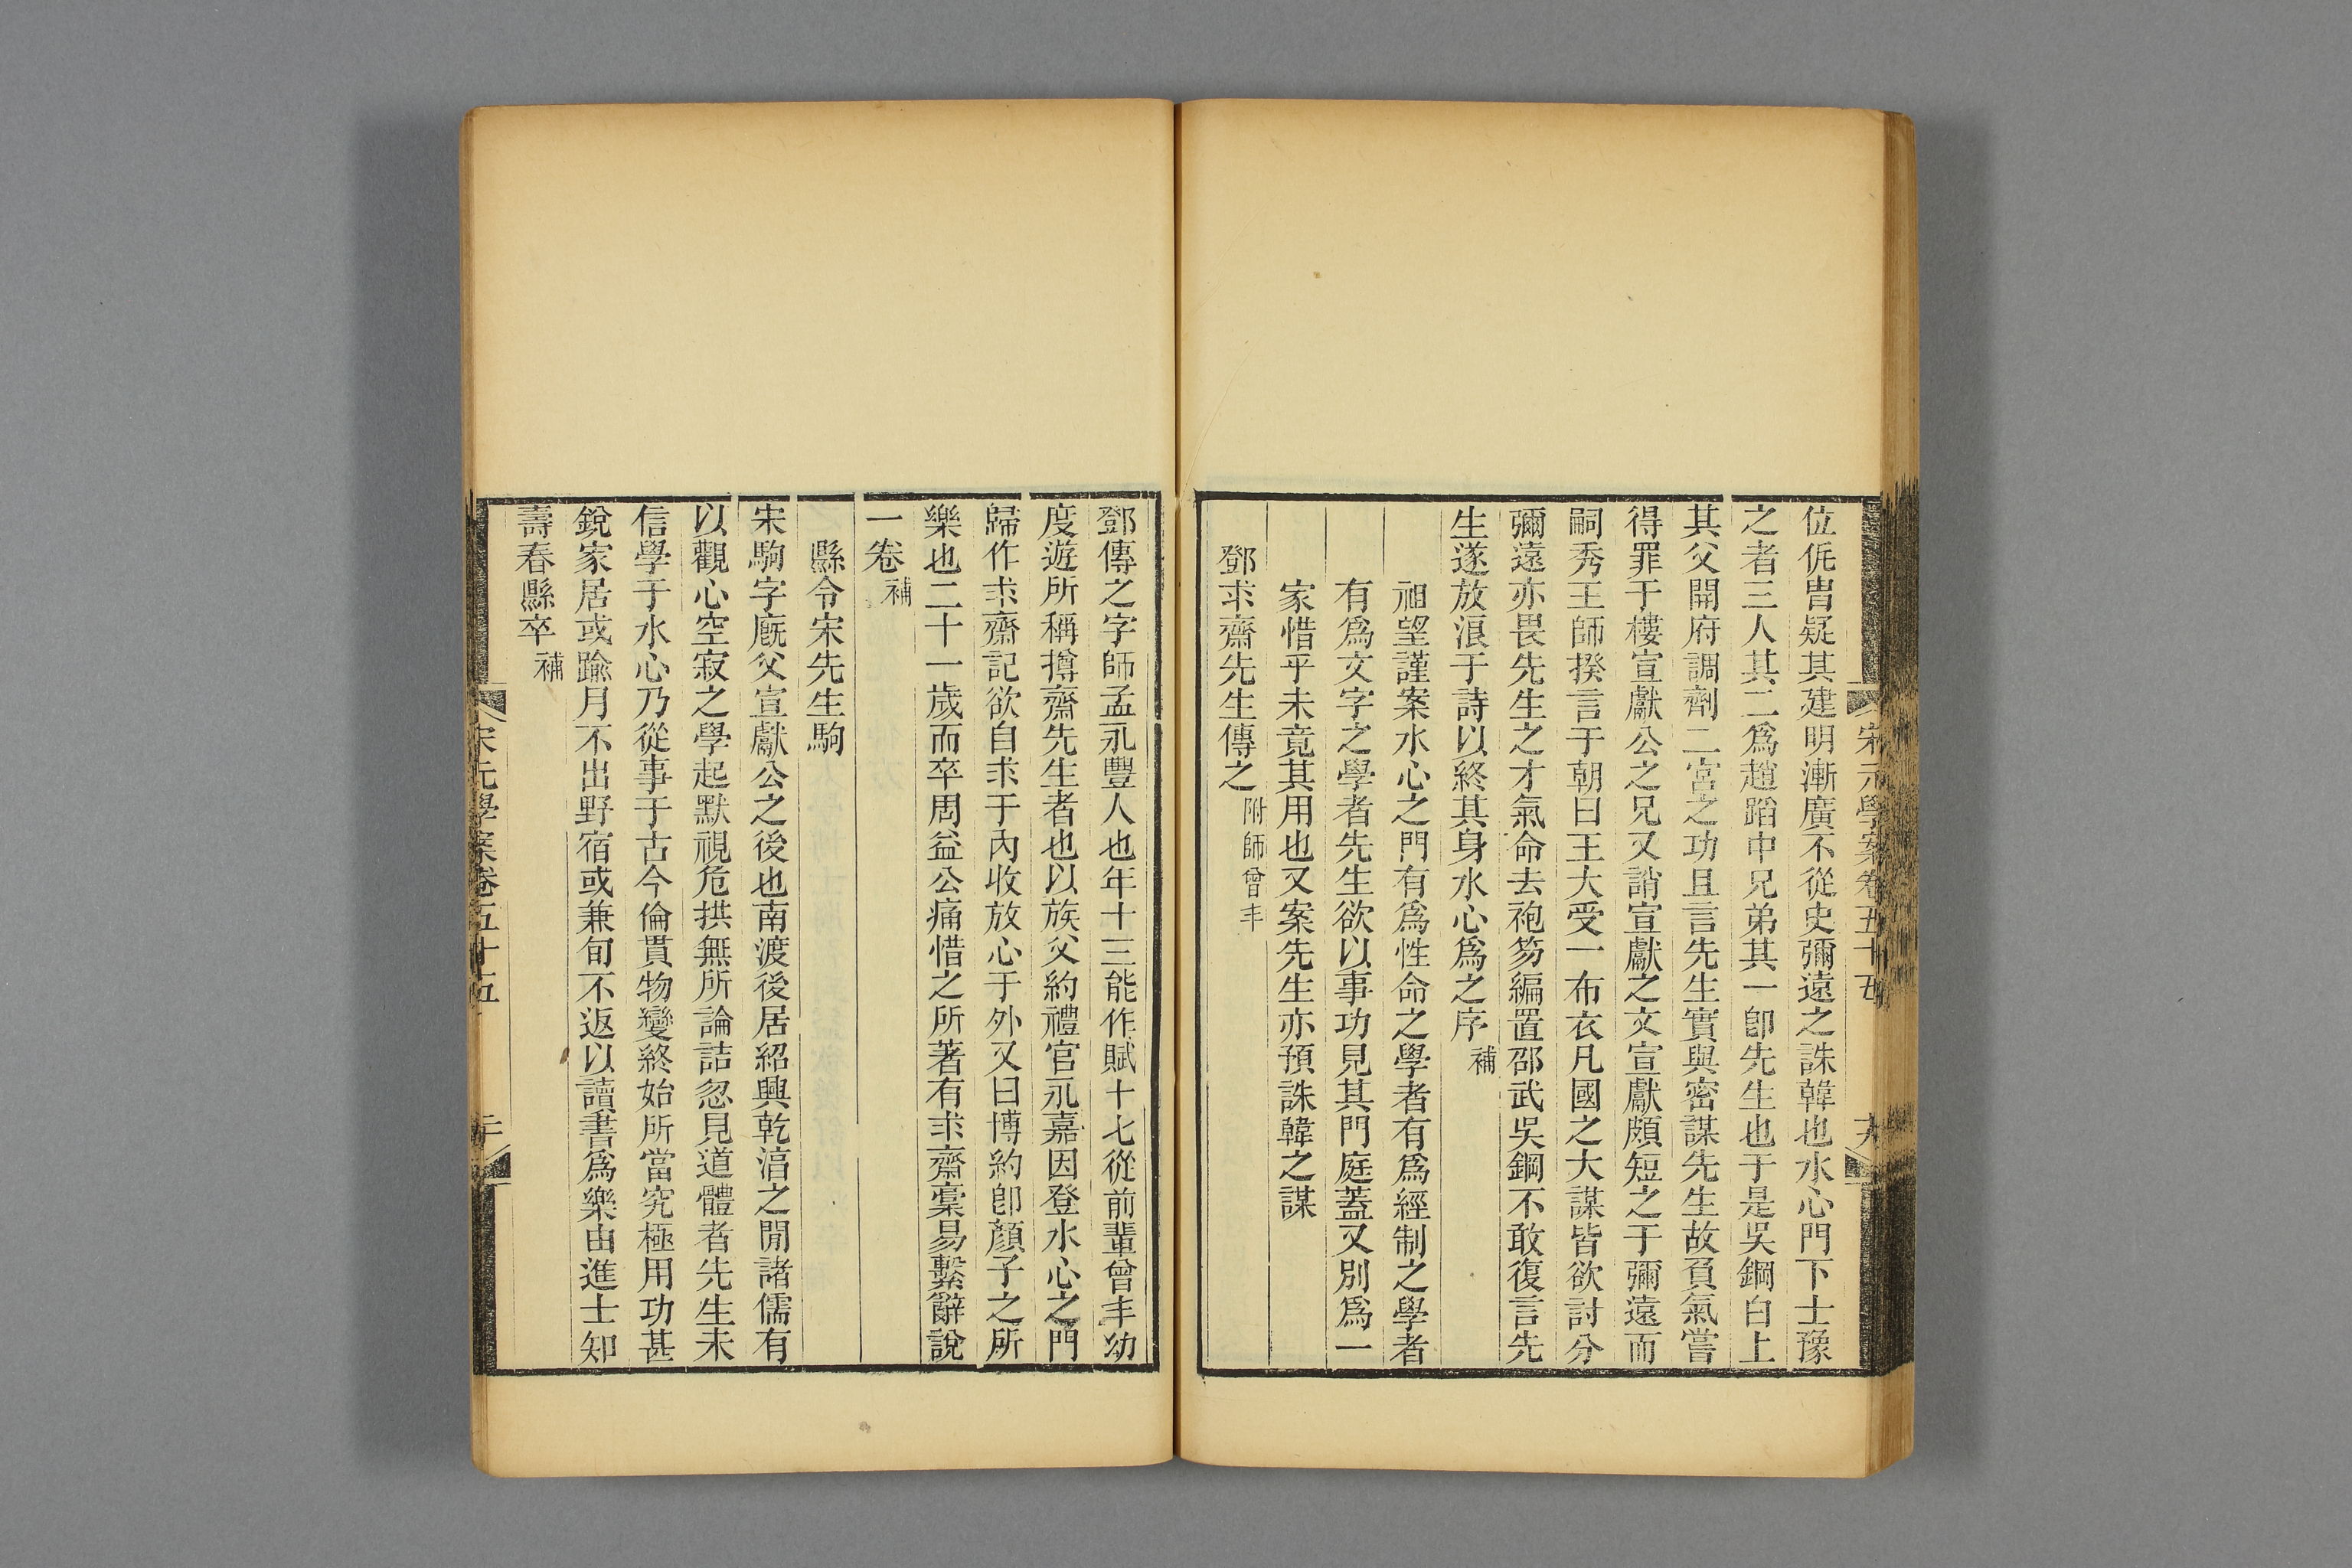 宋元學案卷五十五
位侂胄疑其建明漸廣不從史彌遠之誅韓也水心門下士豫
之者三人其二爲趙蹈中兄弟其一卽先生也于是吳鋼白上
其父開府調劑二宮之功且言先生實與密謀先生故負氣嘗
得罪于樓宣獻公之兄又誚宣獻之文宣獻頗短之于彌遠而
嗣秀王師揆言于朝曰王大受一布衣凡國之大謀皆欲討分
彌遠亦畏先生之才氣命去袍笏編置邵武吳鋼不敢復言先
生遂放浪于詩以終其身水心爲之序補
祖望謹案水心之門有爲性命之學者有爲經制之學者
有爲文字之學者先生欲以事功見其門庭蓋又別爲一
家惜乎未竟其用也又案先生亦預誅韓之謀
鄧求齋先生傳之附師曾丰
鄧傳之字師孟永豐人也年十三能作賦十七從前輩曾丰幼
度遊所稱撙齋先生者也以族父約禮官永嘉因登水心之門
歸作求齋記欲自求于內收放心于外又曰博約卽顏子之所
樂也二十一歲而卒周益公痛惜之所著有求齋稾易繫辭說
一卷補
縣令宋先生駒
宋駒字廐父宣獻公之後也南渡後居紹興乾湻之閒諸儒有
以觀心空寂之學起默視危拱無所論詰忽見道體者先生未
信學于水心乃從事于古今倫貫物變終始所當究極用功甚
銳家居或踰月不出野宿或兼旬不返以讀書爲樂由進士知
壽春縣卒補
宋元學案卷五十五